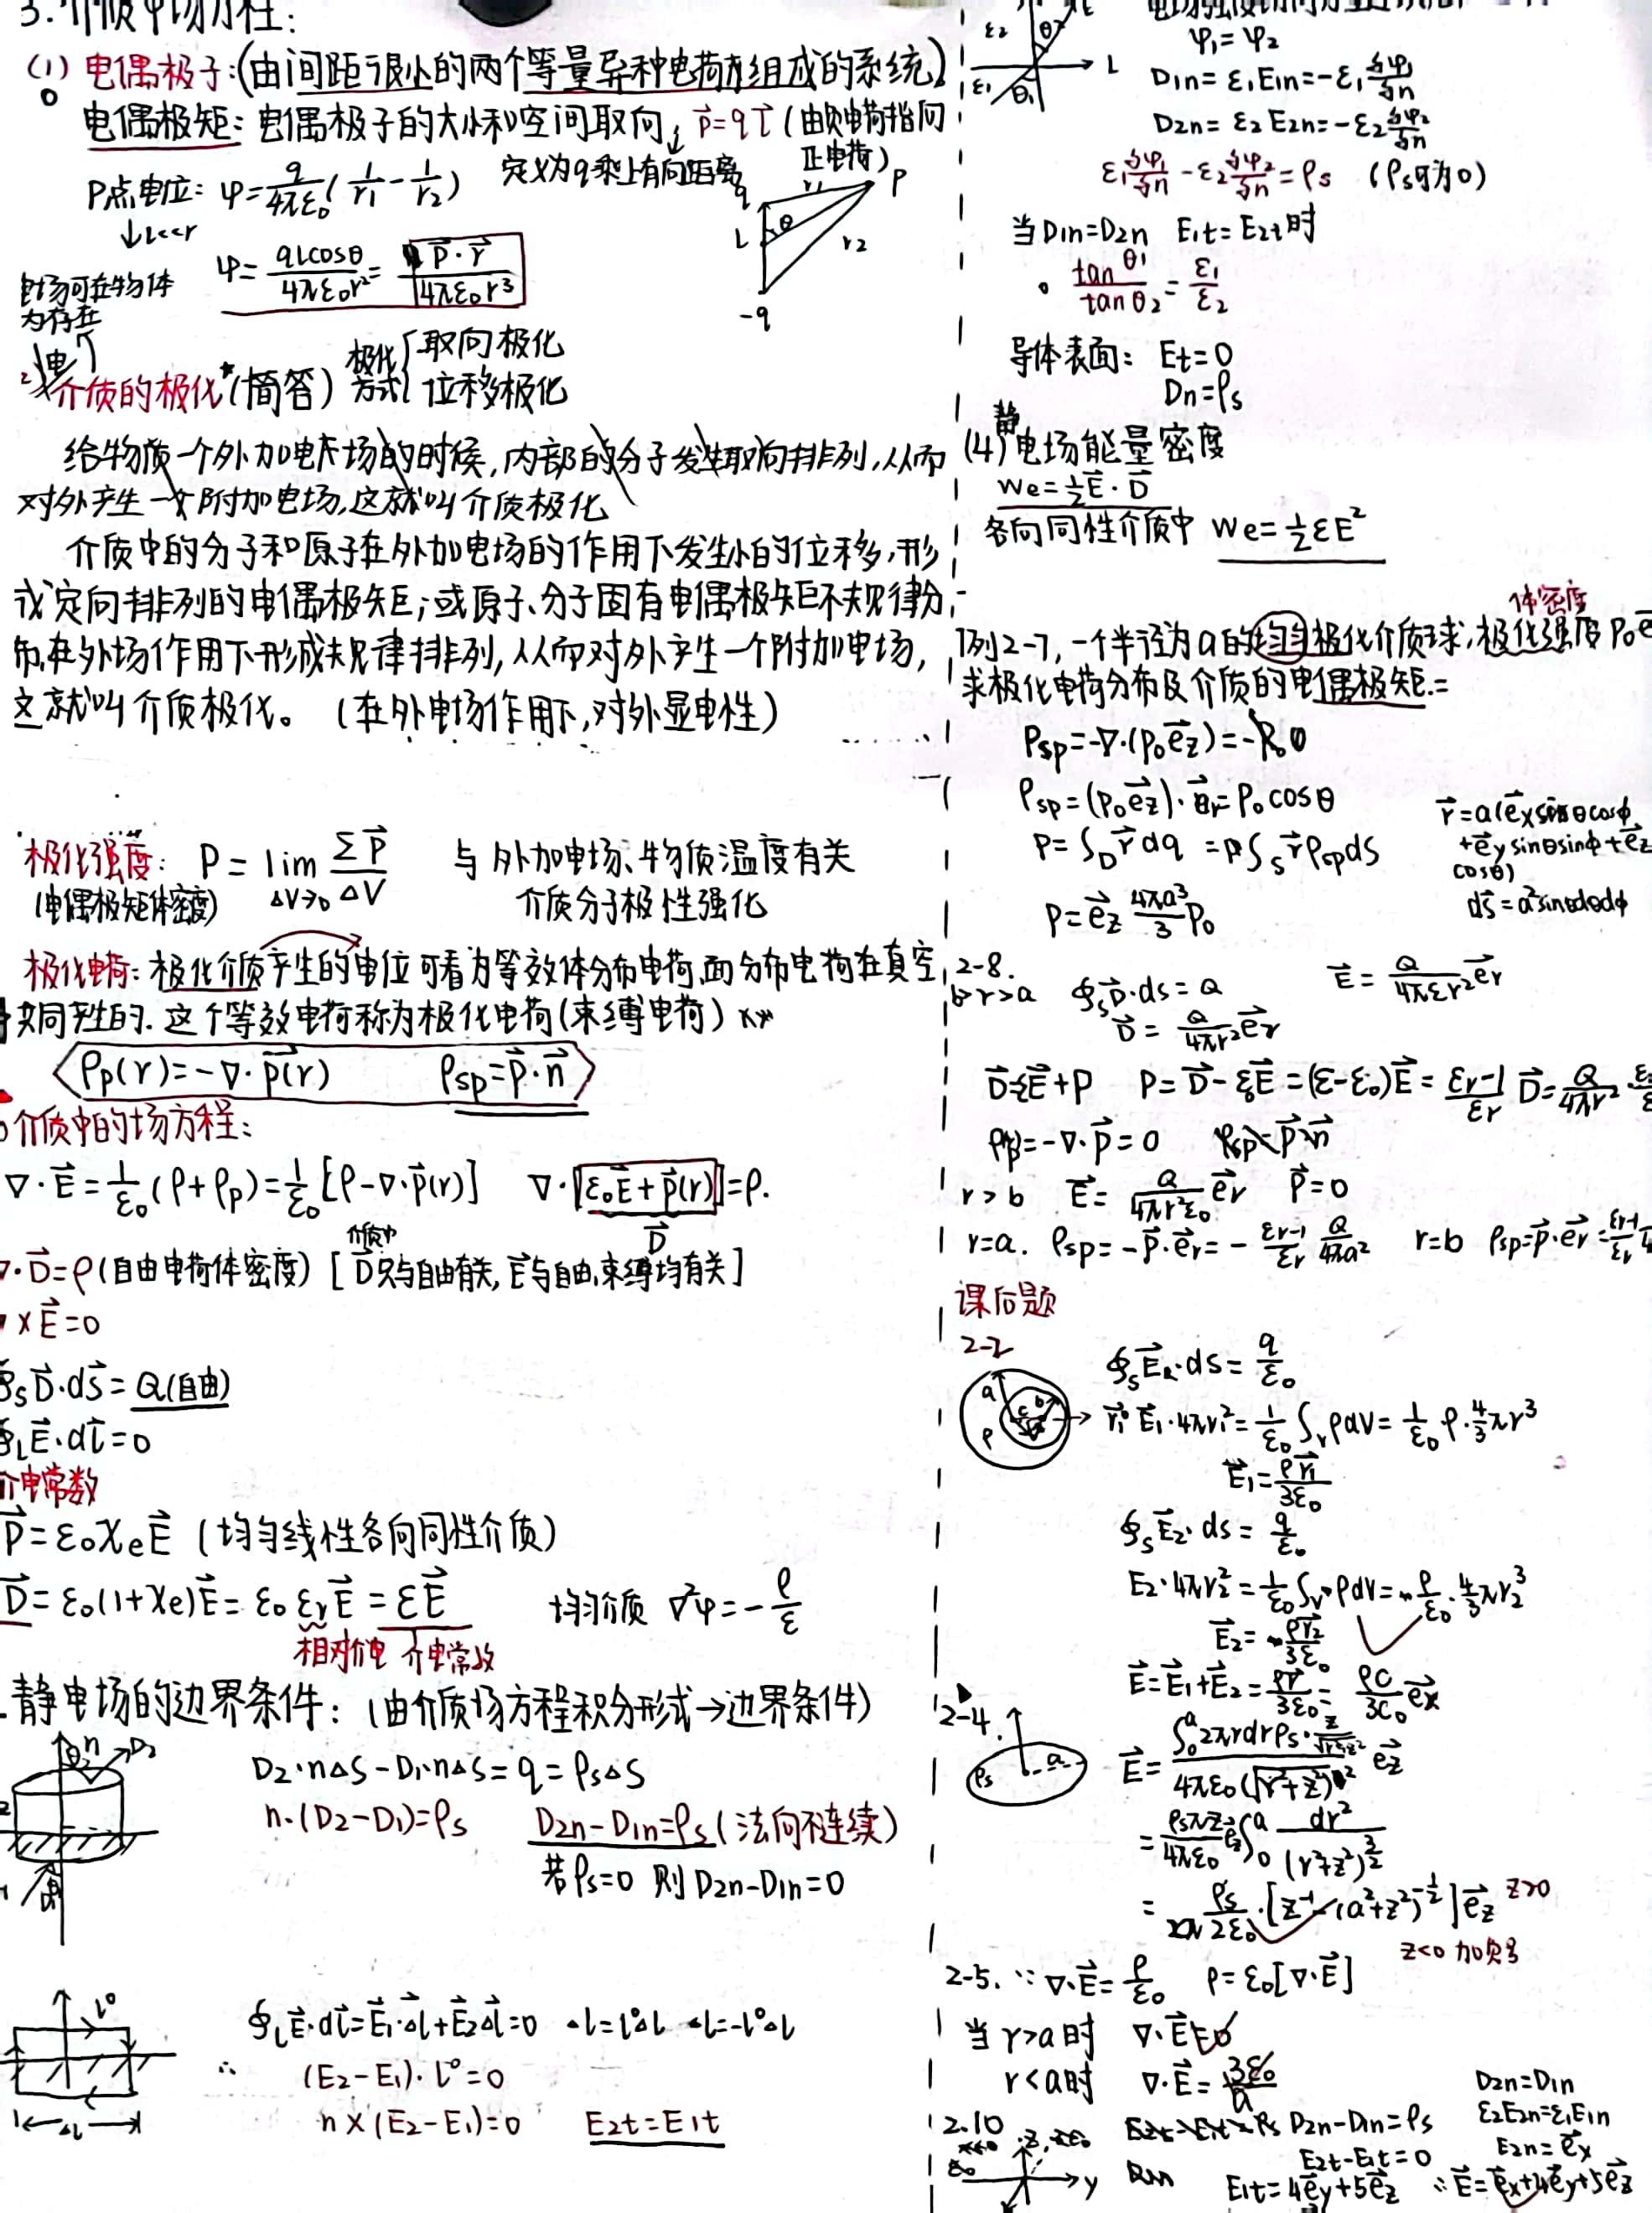 3.介质中场方程:
(1) 电偶极子:(由间距很小的两个等量异种电荷组成的系统)
电偶极矩:电偶极子的大小和空间取向, p⃗=ql⃗ (由负电荷指向正电荷)
定义为q乘上有向距离
P点电位: φ=q/4πε₀(1/r₁-1/r₂)
↓L<<r
φ=qLcosθ/4πε₀r²=p⃗·r⃗/4πε₀r³
q θ r₁ P
L r₂
-q
电场可在物体内存在
电介质的极化*(简答) 极化方式{取向极化
位移极化
给物质一个外加电场的时候,内部的分子发生取向排列,从而
对外产生一个附加电场,这就叫介质极化
介质中的分子和原子在外加电场的作用下发生小的位移,形
成定向排列的电偶极矩;或原子、分子固有电偶极矩不规律分
布,在外场作用下形成规律排列,从而对外产生一个附加电场,
这就叫介质极化。(在外电场作用下,对外显电性)
极化强度: P=lim ΔV→0 Σp⃗/ΔV 与外加电场、物质温度有关
(电偶极矩体密度) 介质分子极性强化
极化电荷:极化介质产生的电位可看为等效体分布电荷,面分布电荷在真空
共同产生的.这个等效电荷称为极化电荷(束缚电荷)
ρp(r)=-∇·p⃗(r) ρsp=p⃗·n⃗
介质中的场方程:
∇·E⃗=1/ε₀(ρ+ρp)=1/ε₀[ρ-∇·p⃗(r)] ∇·[ε₀E⃗+p⃗(r)]=ρ.
D⃗
∇·D⃗=ρ(自由电荷体密度) [介质中D⃗只与自由有关,E⃗与自由,束缚均有关]
∇×E⃗=0
∮s D⃗·ds⃗=Q(自由)
∮L E⃗·dl⃗=0
介电常数
P⃗=ε₀χeE⃗ (均匀线性各向同性介质)
D⃗=ε₀(1+χe)E⃗=ε₀εrE⃗=εE⃗ 均匀介质 ∇²φ=-ρ/ε
相对介电 介电常数
.静电场的边界条件: (由介质场方程积分形式→边界条件)
n D₂
D₂·nΔS-D₁·nΔS=q=ρsΔS
n·(D₂-D₁)=ρs D2n-D1n=ρs(法向不连续)
若ρs=0 则D2n-D1n=0
l°
∮L E⃗·dl⃗=E⃗₁·Δl+E⃗₂Δl=0 Δl=l°Δl Δl=-l°Δl
∴ (E₂-E₁)·l°=0
n×(E₂-E₁)=0 E2t=E1t
Δl
ε₂ θ₂ E
ε₁ θ₁ L
φ₁=φ₂
D1n=ε₁E1n=-ε₁∂φ₁/∂n
D2n=ε₂E2n=-ε₂∂φ₂/∂n
ε₁∂φ₁/∂n-ε₂∂φ₂/∂n=ρs (ρs可为0)
当D1n=D2n E1t=E2t时
tanθ₁/tanθ₂=ε₁/ε₂
导体表面: Et=0
Dn=ρs
(4)静电场能量密度
We=½E⃗·D⃗
各向同性介质中 We=½εE²
体密度
例2-7,一个半径为a的均匀极化介质球,极化强度P₀e
求极化电荷分布及介质的电偶极矩.=
ρsp=-∇·(p₀e⃗z)=0
ρsp=(p₀e⃗z)·e⃗r=p₀cosθ
P=∫D r⃗dq=∫s r⃗ρspds
r⃗=a(e⃗xsinθcosϕ
+e⃗ysinθsinϕ+e⃗z
cosθ)
ds⃗=a²sinθdθdϕ
P=e⃗z 4πa³/3 P₀
2-8.
b>r>a ∮s D⃗·ds=Q E⃗=Q/4πεr² e⃗r
D⃗=Q/4πr² e⃗r
D⃗=ε₀E⃗+P P=D⃗-ε₀E⃗=(ε-ε₀)E⃗=εr-1/εr D⃗=Q/4πr²
ρp=-∇·p⃗=0 ρsp=p⃗·n⃗
r>b E⃗=Q/4πr²ε₀ e⃗r P⃗=0
r=a. ρsp=-p⃗·e⃗r=-εr-1/εr Q/4πa² r=b ρsp=p⃗·e⃗r=εr-1/εr
课后题
2-2
a b c ρ
∮s E⃗·ds=q/ε₀
r⃗₁° E₁·4πr₁²=1/ε₀∫v ρdv=1/ε₀ρ·4/3πr³
E⃗₁=ρr⃗₁/3ε₀
∮s E⃗₂·ds=q/ε₀
E₂·4πr₂²=1/ε₀∫v ρdv=ρ/ε₀·4/3πr₂³
E⃗₂=-ρr⃗₂/3ε₀
E⃗=E⃗₁+E⃗₂=ρr⃗/3ε₀=ρc/3ε₀ e⃗x
2-4.
ρs a
E⃗=∫₀ᵃ2πrdrρs·z/√(r²+z²) / 4πε₀(√(r²+z²))² e⃗z
=ρsπz/4πε₀ e⃗z∫₀ᵃ dr²/(r²+z²)^(3/2)
=ρs/2ε₀·[z⁻¹-(a²+z²)^(-½)]e⃗z z>0
z<0 加负号
2-5. ∵∇·E⃗=ρ/ε₀ ρ=ε₀[∇·E⃗]
当r>a时 ∇·E⃗=0
r<a时 ∇·E⃗=3ε₀/a
2.10
z y
D2n-D1n=ρs
E2t-E1t=0
E1t=4e⃗y+5e⃗z
D2n=D1n
ε₂E2n=ε₁E1n
E2n=e⃗x
∴E⃗=e⃗x+4e⃗y+5e⃗z